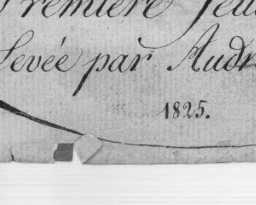 Première Feui
Levée par Audr
1825.